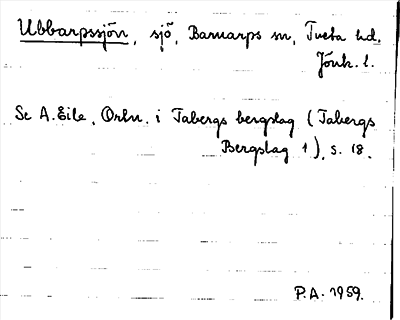 Ubbarpssjön, sjö, Barnarps sn, Tveta hd.
Jönk. l.
Se A. Eile, Ortn. i Tabergs bergslag (Tabergs
Bergslag 1), s. 18.
P.A. 1959.